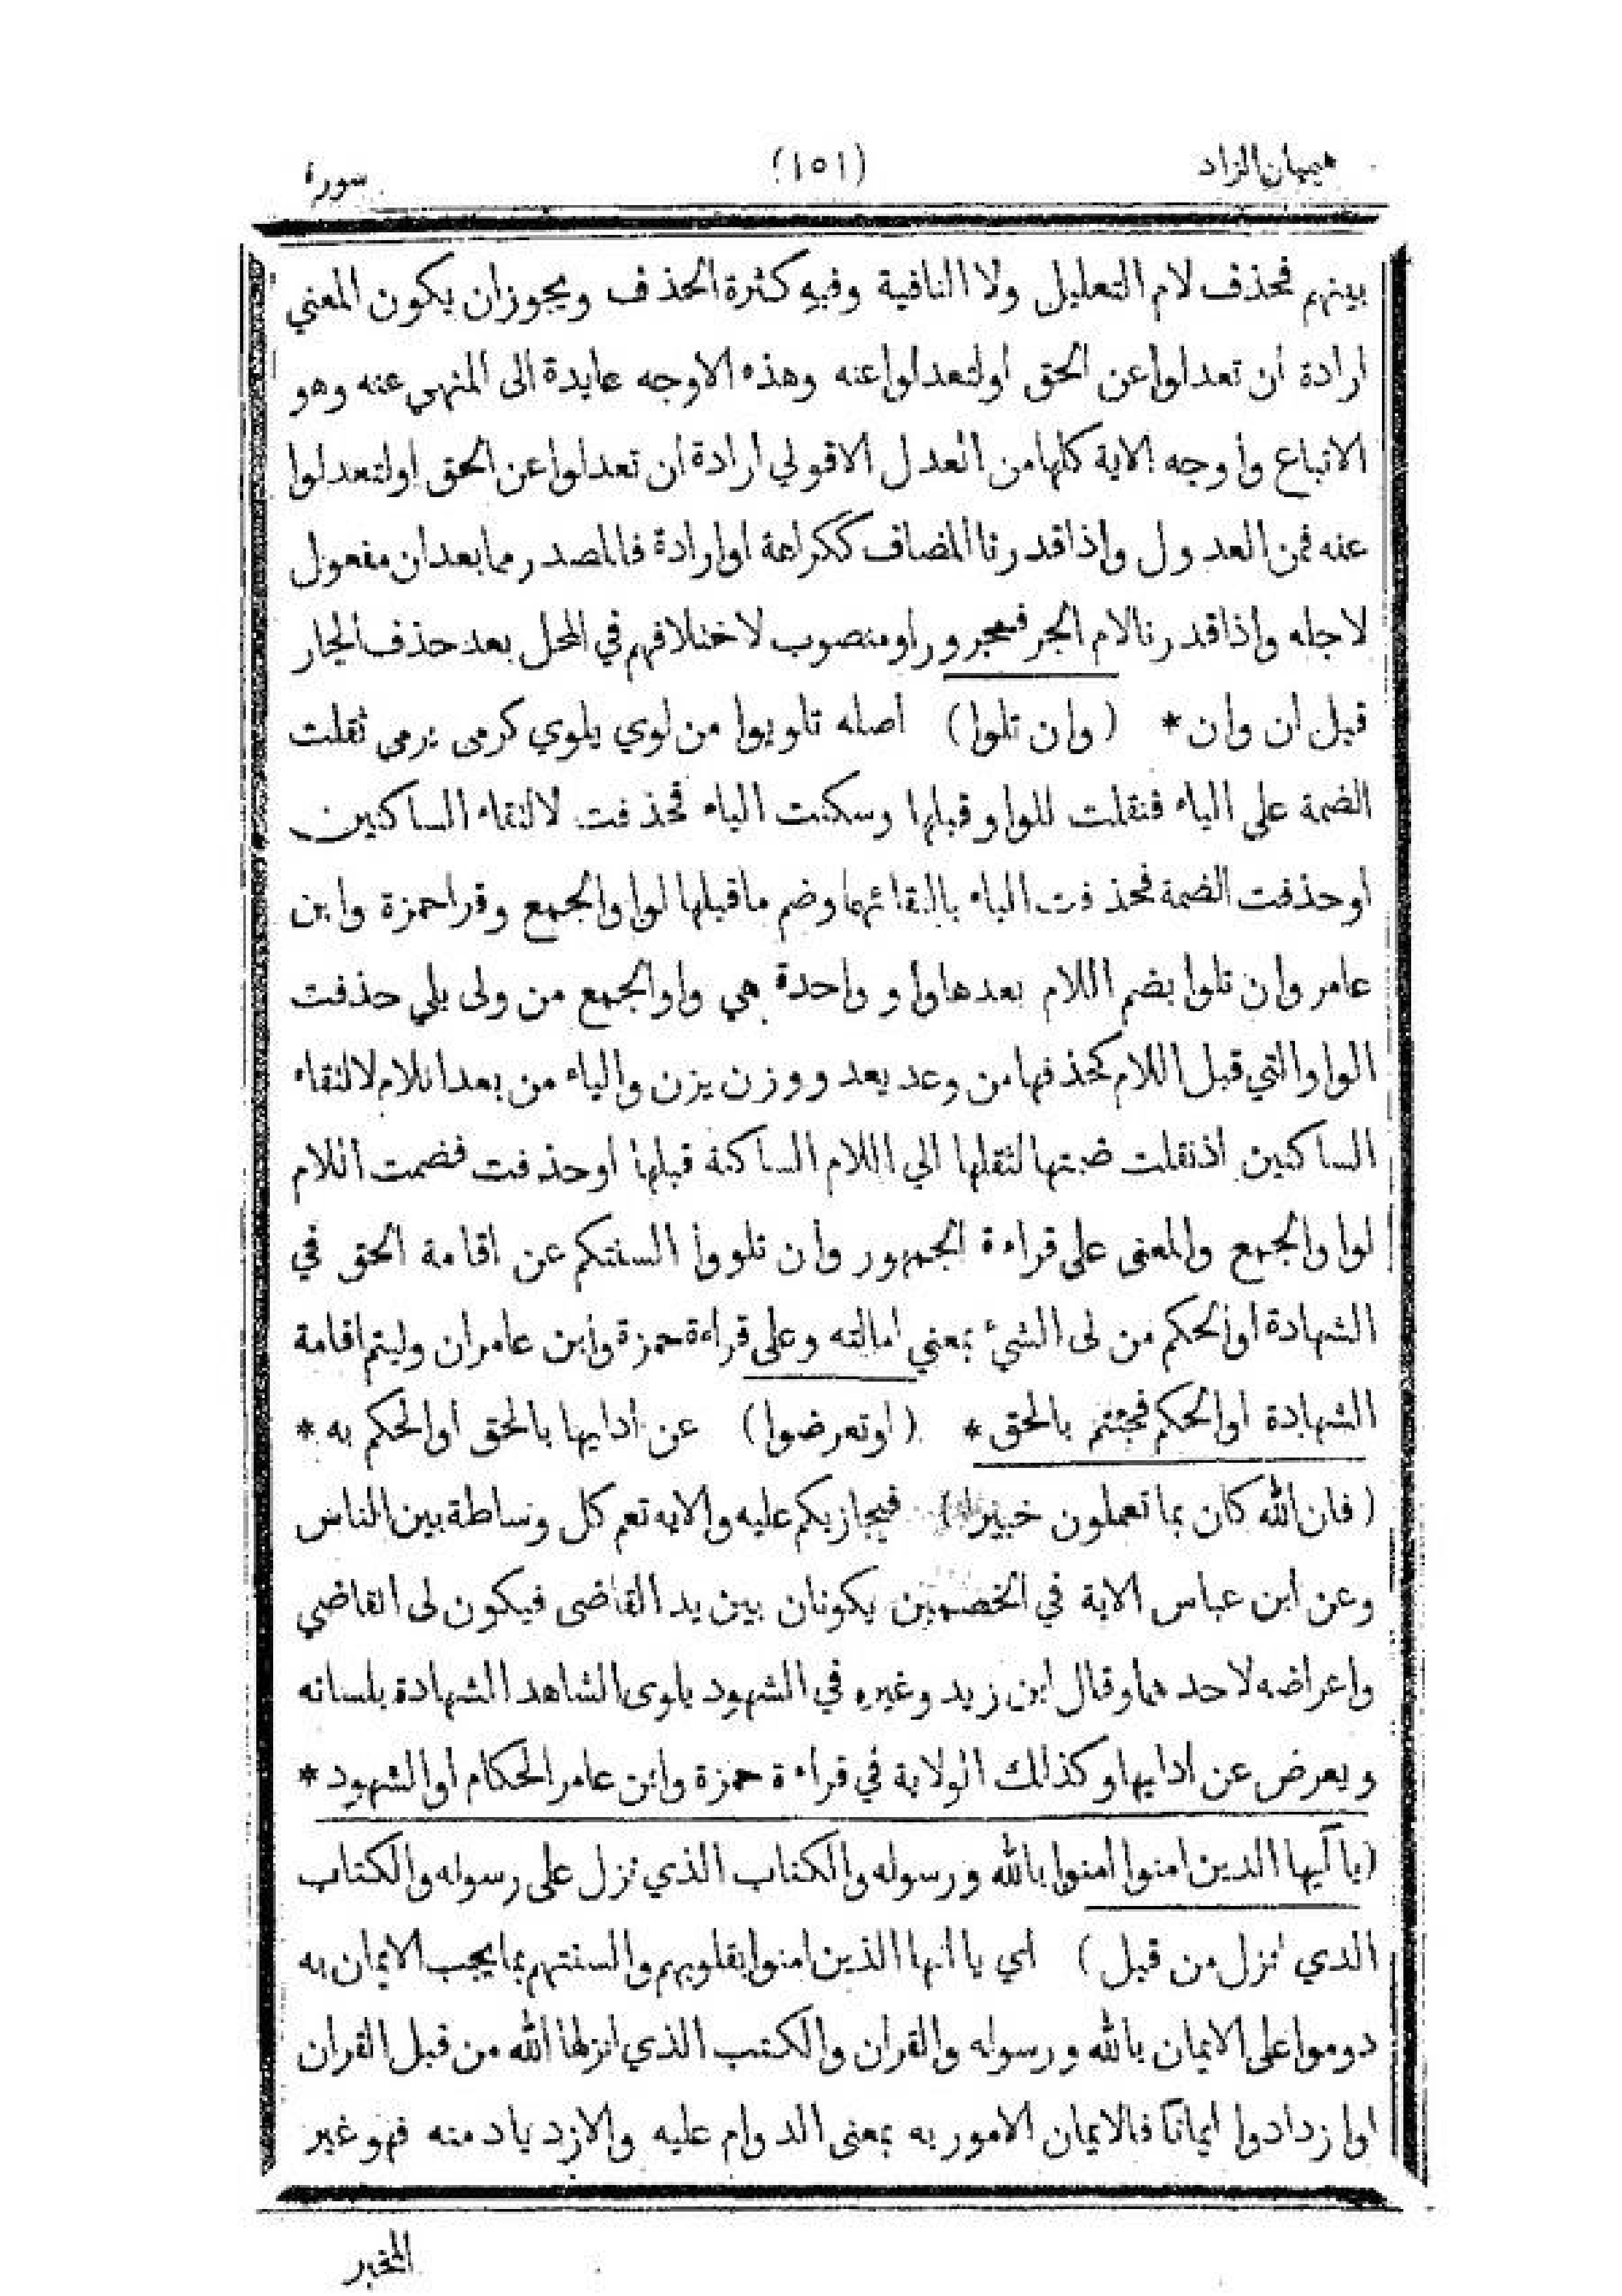 هيميان الزاد (١٥١) سورة
بينهم فحذف لام التعليل ولا النافية وفيه كثرة الحذف ويجوز ان يكون المعني
ارادة أن تعدلوا عن الحق او لتعدلوا عنه وهذه الاوجه عايدة الى المنهي عنه وهو
الاتباع وأوجه الاية كلها من العدل الا قولي ارادة أن تعدلوا عن الحق او لتعدلوا
عنه فمن العدول واذا قدرنا المضاف ككراهة او ارادة فالمصدر مما بعد ان مفعول
لاجله واذا قدرنا لام الجر فمجرور او منصوب لاختلافهم في المحل بعد حذف الجار
قبل ان وان * (وان تلوا) أصله تلويوا من لوي يلوي كرمى يرمى ثقلت
الضمة على الياء فنقلت للواو قبلها وسكنت الياء فحذفت لالتقاء الساكنين
او حذفت الضمة فحذفت الياء بالتقائهما وضم ما قبلها لواو الجمع وقرا حمزة وابن
عامر وان تلوا بضم اللام بعدها واو واحدة هي واو الجمع من ولى يلي حذفت
الواو التي قبل اللام كحذفها من وعد يعد ووزن يزن والياء من بعد اللام لالتقاء
الساكنين اذ نقلت ضمتها لثقلها الي اللام الساكنة قبلها او حذفت فضمت اللام
لواو الجمع والمعنى على قراءة الجمهور وان تلووا السنتكم عن اقامة الحق في
الشهادة او الحكم من لى الشيء بمعني امالته وعلى قراءة حمزة وابن عامر ان وليتم اقامة
الشهادة او الحكم فجئتم بالحق * (او تعرضوا) عن أدايها بالحق او الحكم به *
(فان الله كان بما تعملون خبيرا) فيجازيكم عليه والايه تعم كل وساطة بين الناس
وعن ابن عباس الاية في الخصمين يكونان بين يد القاضى فيكون لى القاضي
واعراضه لاحدهما وقال ابن زيد وغيره في الشهود يلوى الشاهد الشهادة بلسانه
ويعرض عن ادايها وكذلك الولاية في قراءة حمزة وابن عامر الحكام او الشهود *
(يا أيها الدين امنوا امنوا بالله ورسوله والكتاب الذي نزل على رسوله والكتاب
الدي انزل من قبل) اي يا ايها الذين امنوا بقلوبهم والسنتهم بما يجب الايمان به
دوموا على الايمان بالله ورسوله والقران والكتب الذي انزلها الله من قبل القران
او ازدادوا ايمانا فالايمان الامور به بمعنى الدوام عليه والازدياد منه فهو غير
المخبر